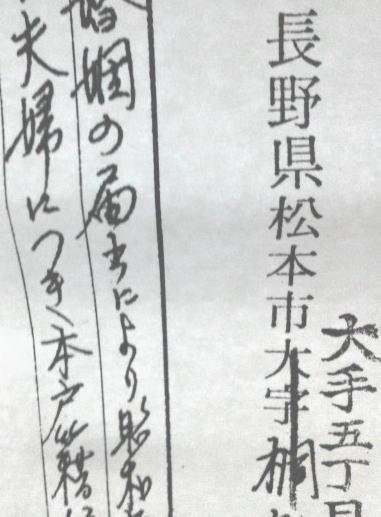 大手五丁目
長野県松本市大字桐
婚姻の届出により昭和
夫婦につき本戸籍